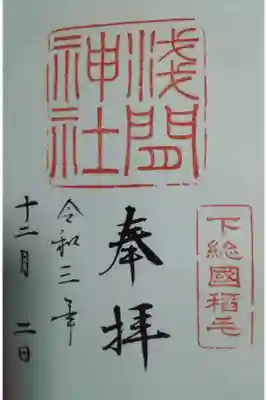 下総國稲毛
淺間
神社
奉拝
令和三年
十二月二日